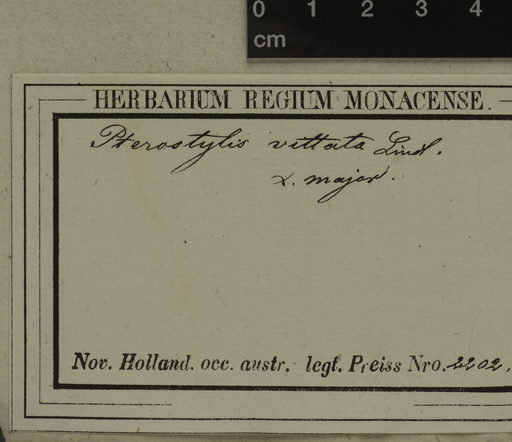 0 1 2 3 4
cm
HERBARIUM REGIUM MONACENSE.
Pterostylis vittata Lindl.
α. major.
Nov. Holland. occ. austr. legt. Preiss Nro. 2202.